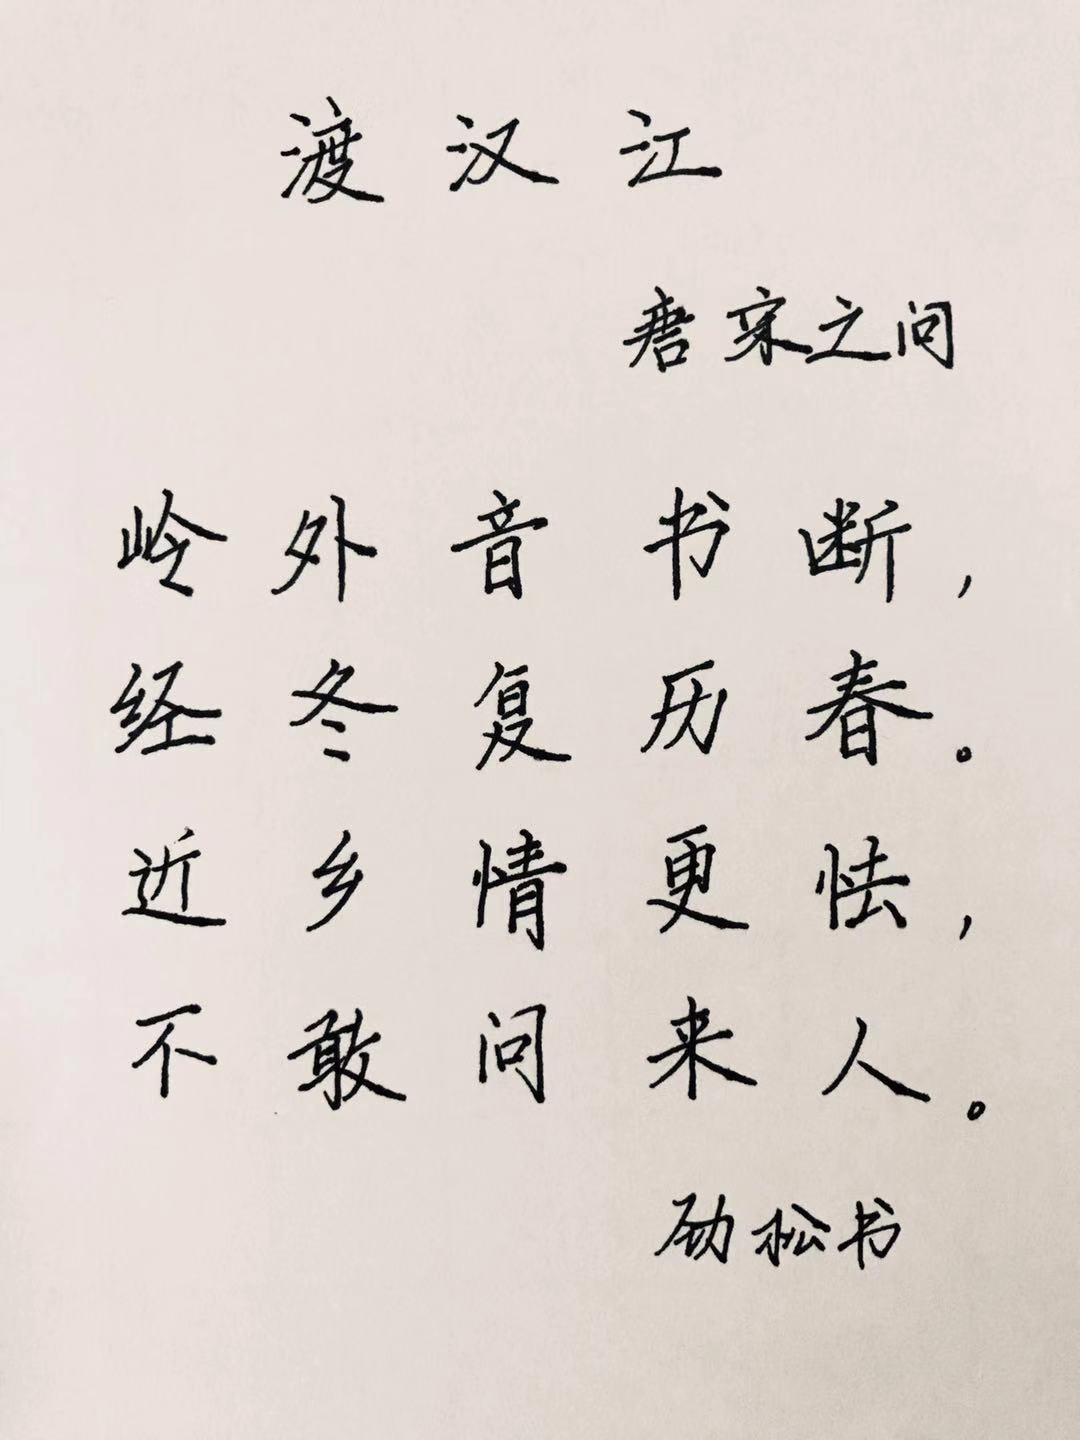 渡汉江
唐宋之问
岭外音书断，
经冬复历春。
近乡情更怯，
不敢问来人。
劲松书